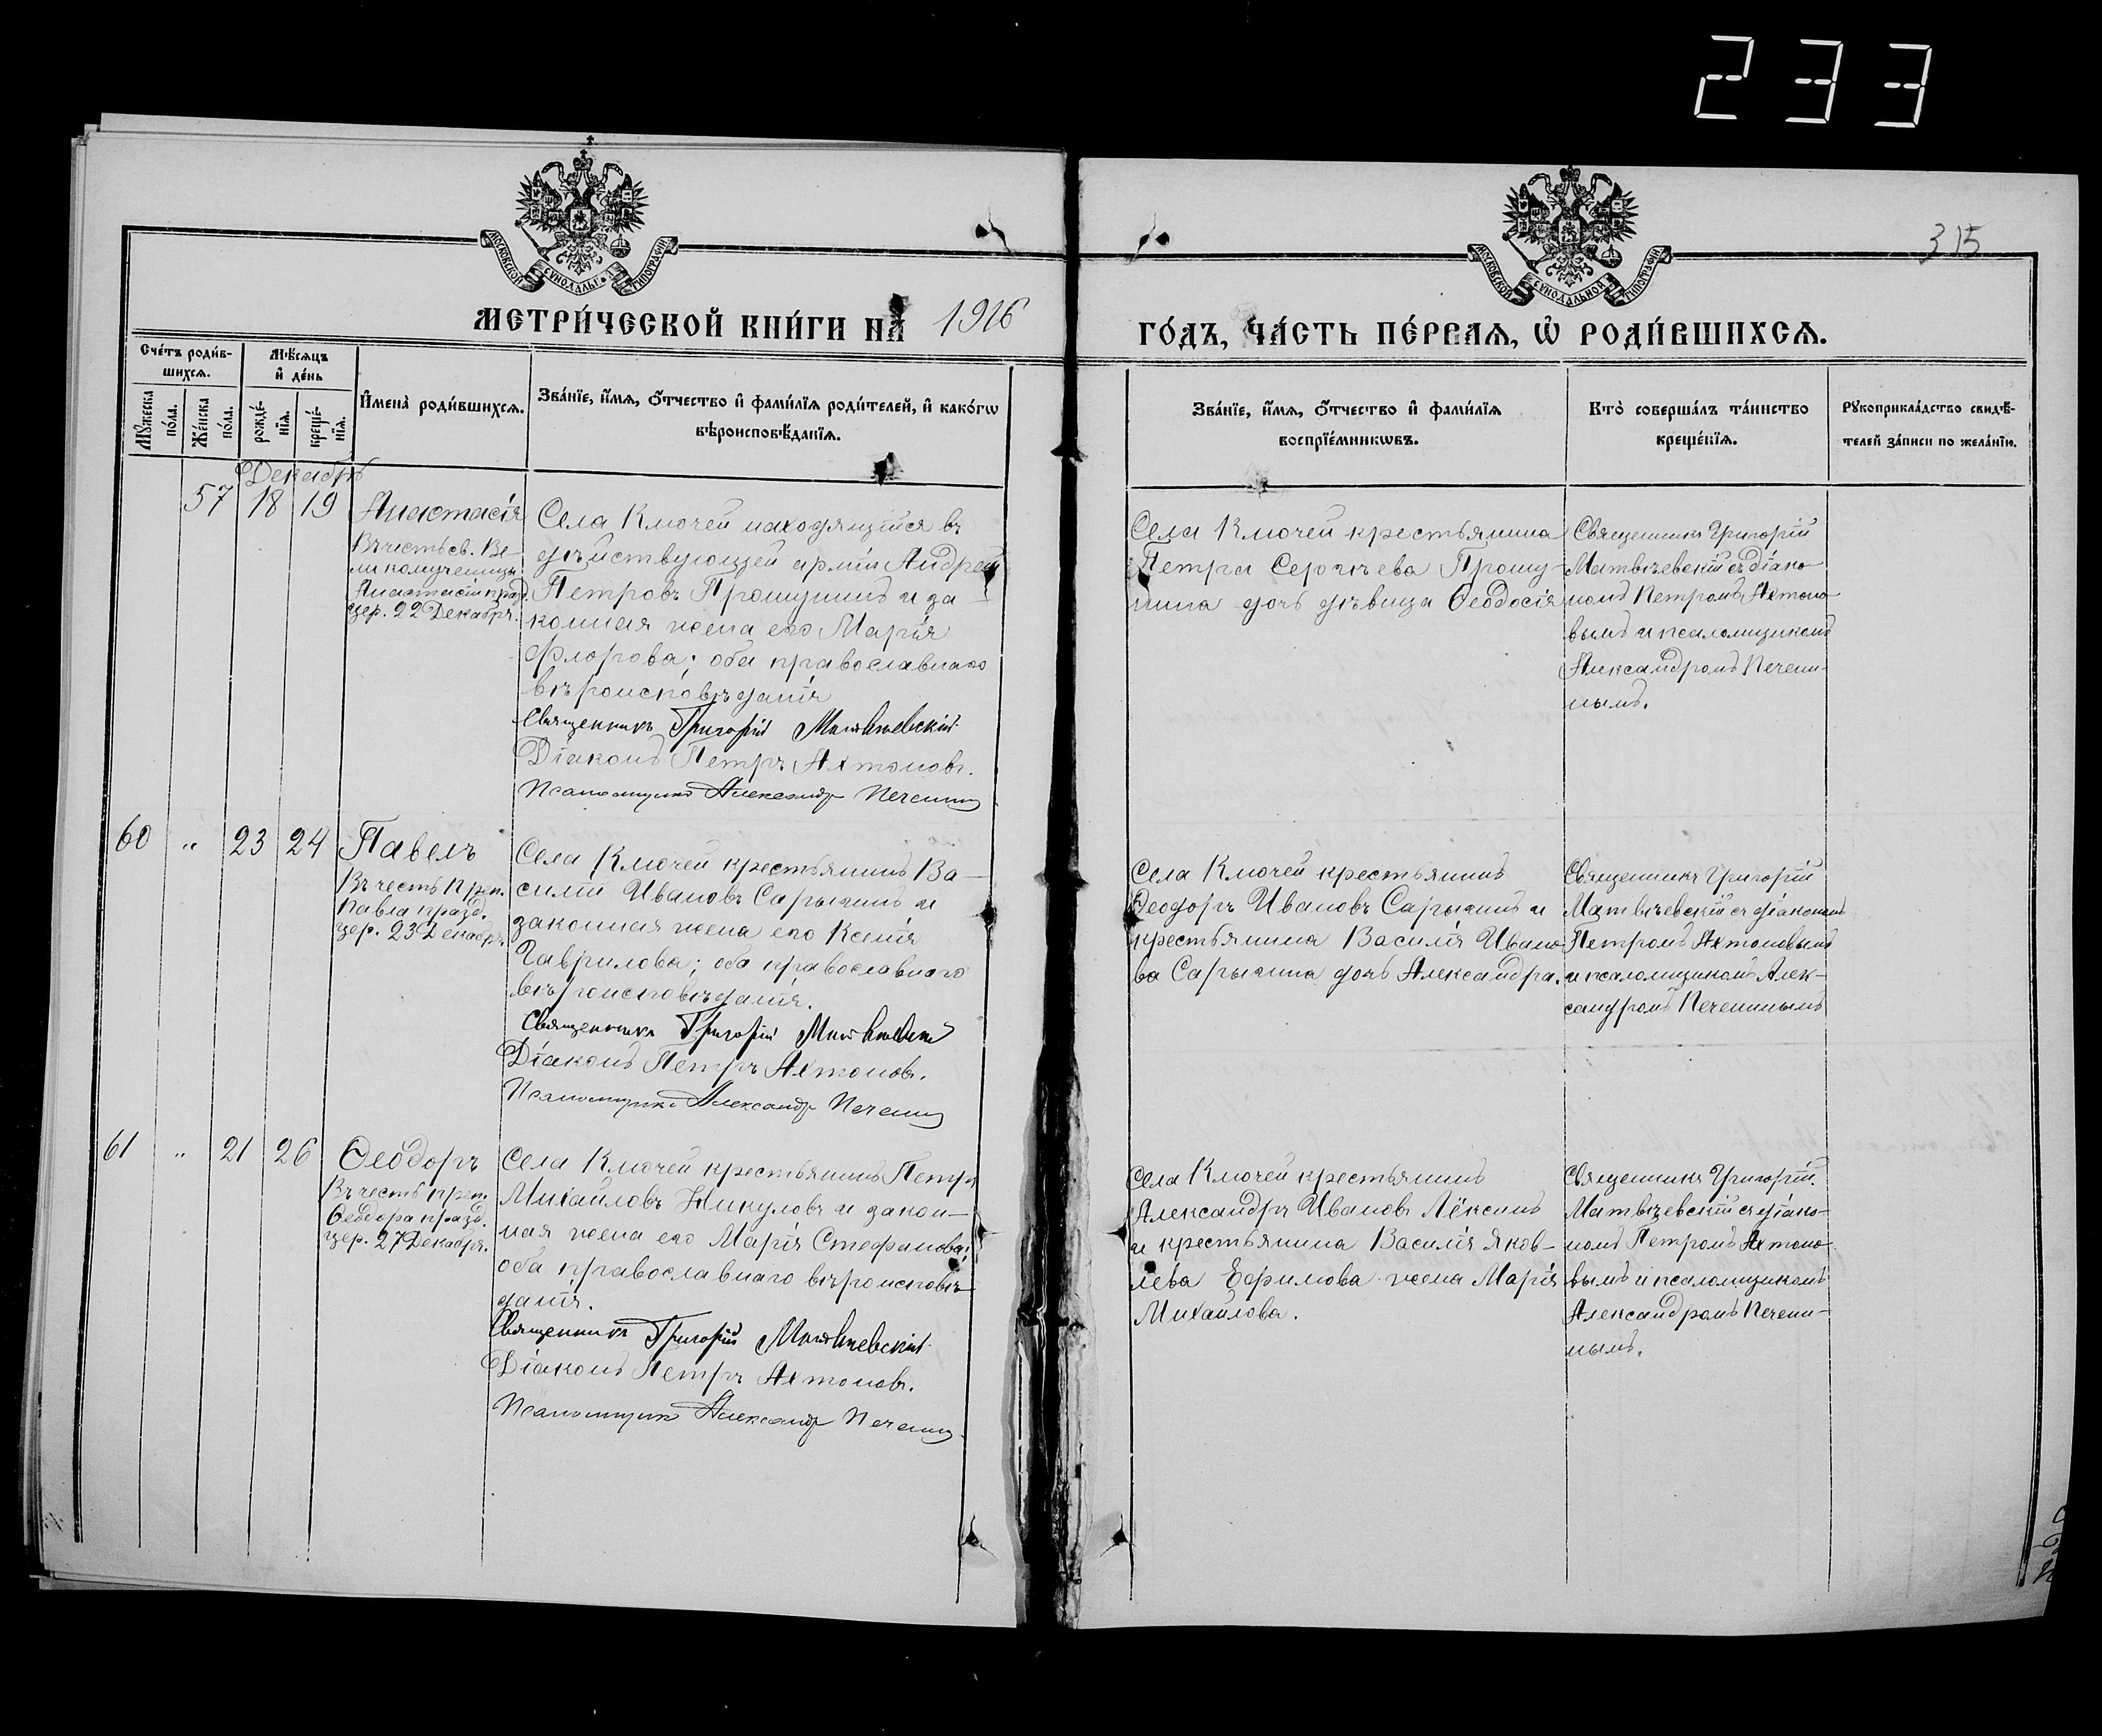 233
315
МОСКОВСКОЙ СѴНОДАЛЬН. ТИПОГРАФІИ
МОСКОВСКОЙ СѴНОДАЛЬНОЙ ТИПОГРАФІИ
МЕТРИ́ЧЕСКОЙ КНИ́ГИ НА̀ 1916 ГО́ДЪ, ЧА́СТЬ ПЕ́РВАЯ, Ѡ РОДИ́ВШИХСЯ.
Сче́тъ роди́в-
шихся.
Мꙋжеска по́ла.
Же́нска по́ла.
Мѣ́сяцъ и де́нь
рожде́-
нїя.
креще́-
нїя.
Имена̀ роди́вшихся.
Зва́нїе, и́мя, ѻ́тчество и фами́лїя роди́телей, и како́гѡ
вѣроисповѣ́данїя.
Зва́нїе, и́мя, ѻ́тчество и фами́лїя
воспрїе́мникѡвъ.
Кто̀ соверша́лъ та́инство
креще́нїя.
Рꙋкоприкла́дство свидѣ́-
телей за́писи по жела́нїю.
Декабрь
57 18 19 Анастасія
Въ честь св. Ве-
ликомученицы
Анастасіи празд.
цер. 22 Декабря.
Села Ключей находящійся въ
дѣйствующей арміи Андрей
Петровъ Прошунинъ и за-
конная жена его Марія
Флорова; оба православнаго
вѣроисповѣданія
Священникъ Григорій Матвѣевскій.
Діаконъ Петръ Ахтоновъ.
Псаломщикъ Александръ Печенинъ
Села Ключей крестьянина
Петра Сергѣева Прошу-
нина дочь дѣвица Ѳеодосія
Священникъ Григорій
Матвѣевскій съ діако-
номъ Петромъ Ахтоно-
вымъ и псаломщикомъ
Александромъ Печени-
нымъ.
60 „ 23 24 Павелъ
Въ честь Преп.
Павла празд.
цер. 23 Декабря.
Села Ключей крестьянинъ Ва-
силій Ивановъ Сарычинъ и
законная жена его Ксенія
Гаврилова; оба православнаго
вѣроисповѣданія.
Священникъ Григорій Матвѣевскій
Діаконъ Петръ Ахтоновъ.
Псаломщикъ Александръ Печенинъ
Села Ключей крестьянинъ
Ѳеодоръ Ивановъ Сарычинъ и
крестьянина Василія Ивано-
ва Сарычина дочь Александра.
Священникъ Григорій
Матвѣевскій съ діакономъ
Петромъ Ахтоновымъ
и псаломщикомъ Алек-
сандромъ Печенинымъ
61 „ 21 26 Ѳеодоръ
Въ честь Преп.
Ѳеодора празд.
цер. 27 Декабря.
Села Ключей крестьянинъ Петръ
Михайловъ Никуловъ и закон-
ная жена его Марія Стефанова;
оба православнаго вѣроисповѣ-
данія.
Священникъ Григорій Матвѣевскій.
Діаконъ Петръ Ахтоновъ.
Псаломщикъ Александръ Печенинъ.
Села Ключей крестьянинъ
Александръ Ивановъ Лёксинъ
и крестьянина Василія Яков-
лева Ефимова жена Марія
Михайлова.
Священникъ Григорій
Матвѣевскій съ діако-
номъ Петромъ Ахтоно-
вымъ и псаломщикомъ
Александромъ Печени-
нымъ.